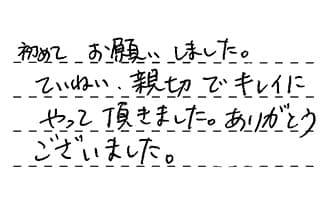 初めて お願いしました。
ていねい、親切でキレイに
やって頂きました。ありがとう
ございました。